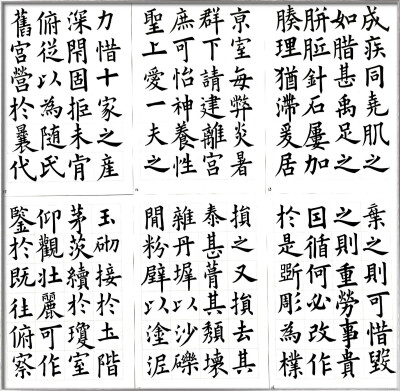 成疾同堯肌之
如腊甚禹足之
胼胝針石屢加
腠理猶滯爰居
京室每弊炎暑
群下請建離宮
庶可怡神養性
聖上愛一夫之
力惜十家之産
深閇固拒未肯
俯從以為随氏
舊宮營於曩代
棄之則可惜毀
之則重勞事貴
因循何必改作
於是斲彫為樸
損之又損去其
泰甚葺其頹壞
雜丹墀以沙礫
間粉壁以塗泥
玉砌接於土階
茅茨續於瓊室
仰觀壯麗可作
鑒於既往俯察